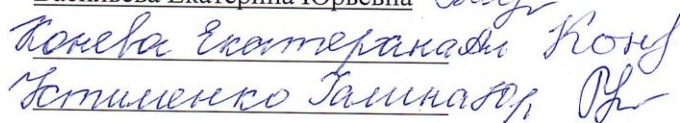 Васильева Екатерина Юрьевна
Конева Екатерина Ал Кон
Устименко Галина Юр